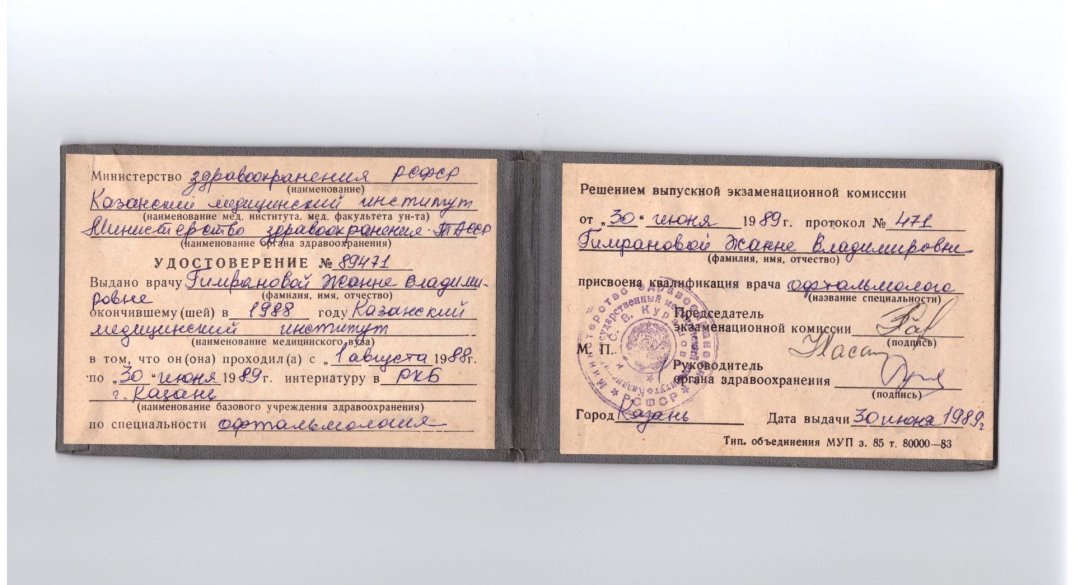 Министерство здравоохранения РСФСР
(наименование)
Казанский медицинский институт
(наименование мед. института, мед. факультета ун-та)
Министерство здравоохранения ТАССР
(наименование органа здравоохранения)
УДОСТОВЕРЕНИЕ № 89471
Выдано врачу Гимрановой Жанне Владими-
(фамилия, имя, отчество)
ровне
окончившему (шей) в 1988 году Казанский
медицинский институт
(наименование медицинского вуза)
в том, что он(она) проходил(а) с „1 августа 1988г.
по „30" июня 1989г. интернатуру в РКБ
г. Казань
(наименование базового учреждения здравоохранения)
по специальности офтальмология
Решением выпускной экзаменационной комиссии
от „30" июня 1989г. протокол № 471
Гимрановой Жанне Владимировне
(фамилия, имя, отчество)
присвоена квалификация врача офтальмолога
(название специальности)
Председатель
экзаменационной комиссии
(подпись)
М. П.
Руководитель
органа здравоохранения
(подпись)
Город Казань Дата выдачи 30 июня 1989г
Тип. объединения МУП з. 85 т. 80000—83
Министерство здравоохранения РСФСР